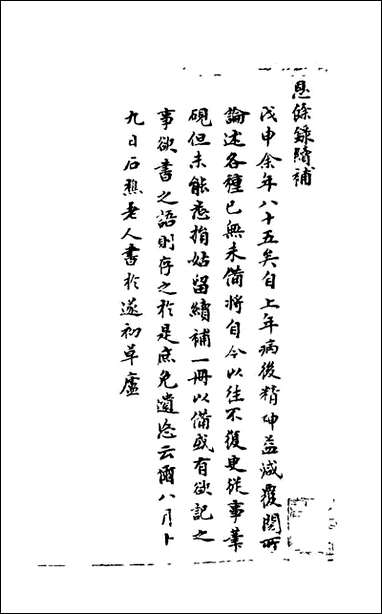 恩餘錄續補
戊申余年八十五矣自上年病後精神益減覆閱所
論述各種已無未備將自今以往不復更從事筆
硯但未能忘指姑留續補一冊以備或有欲記之
事欲書之語則存之於是庶免遺忘云爾八月卜
九日石樵老人書於遂初草廬